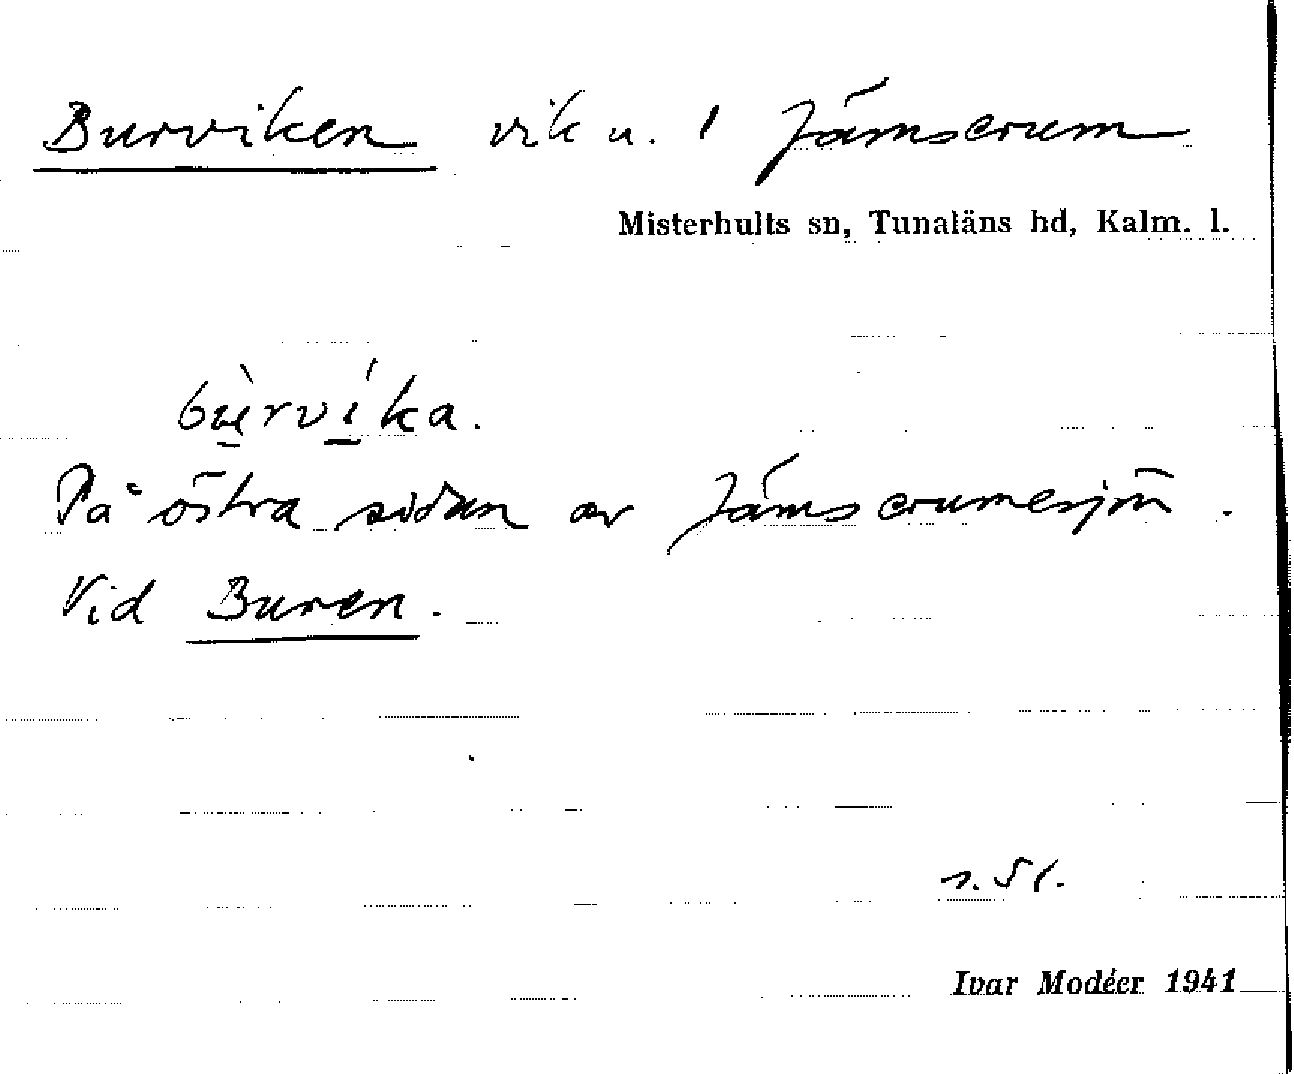 Burviken vik u. 1 Jämserum
Misterhults sn, Tunaläns hd, Kalm. l.
bù̱rví̱ka.
På östra sidan av Jämserumesjön.
Vid Buren.
s. 51.
Ivar Modéer 1941